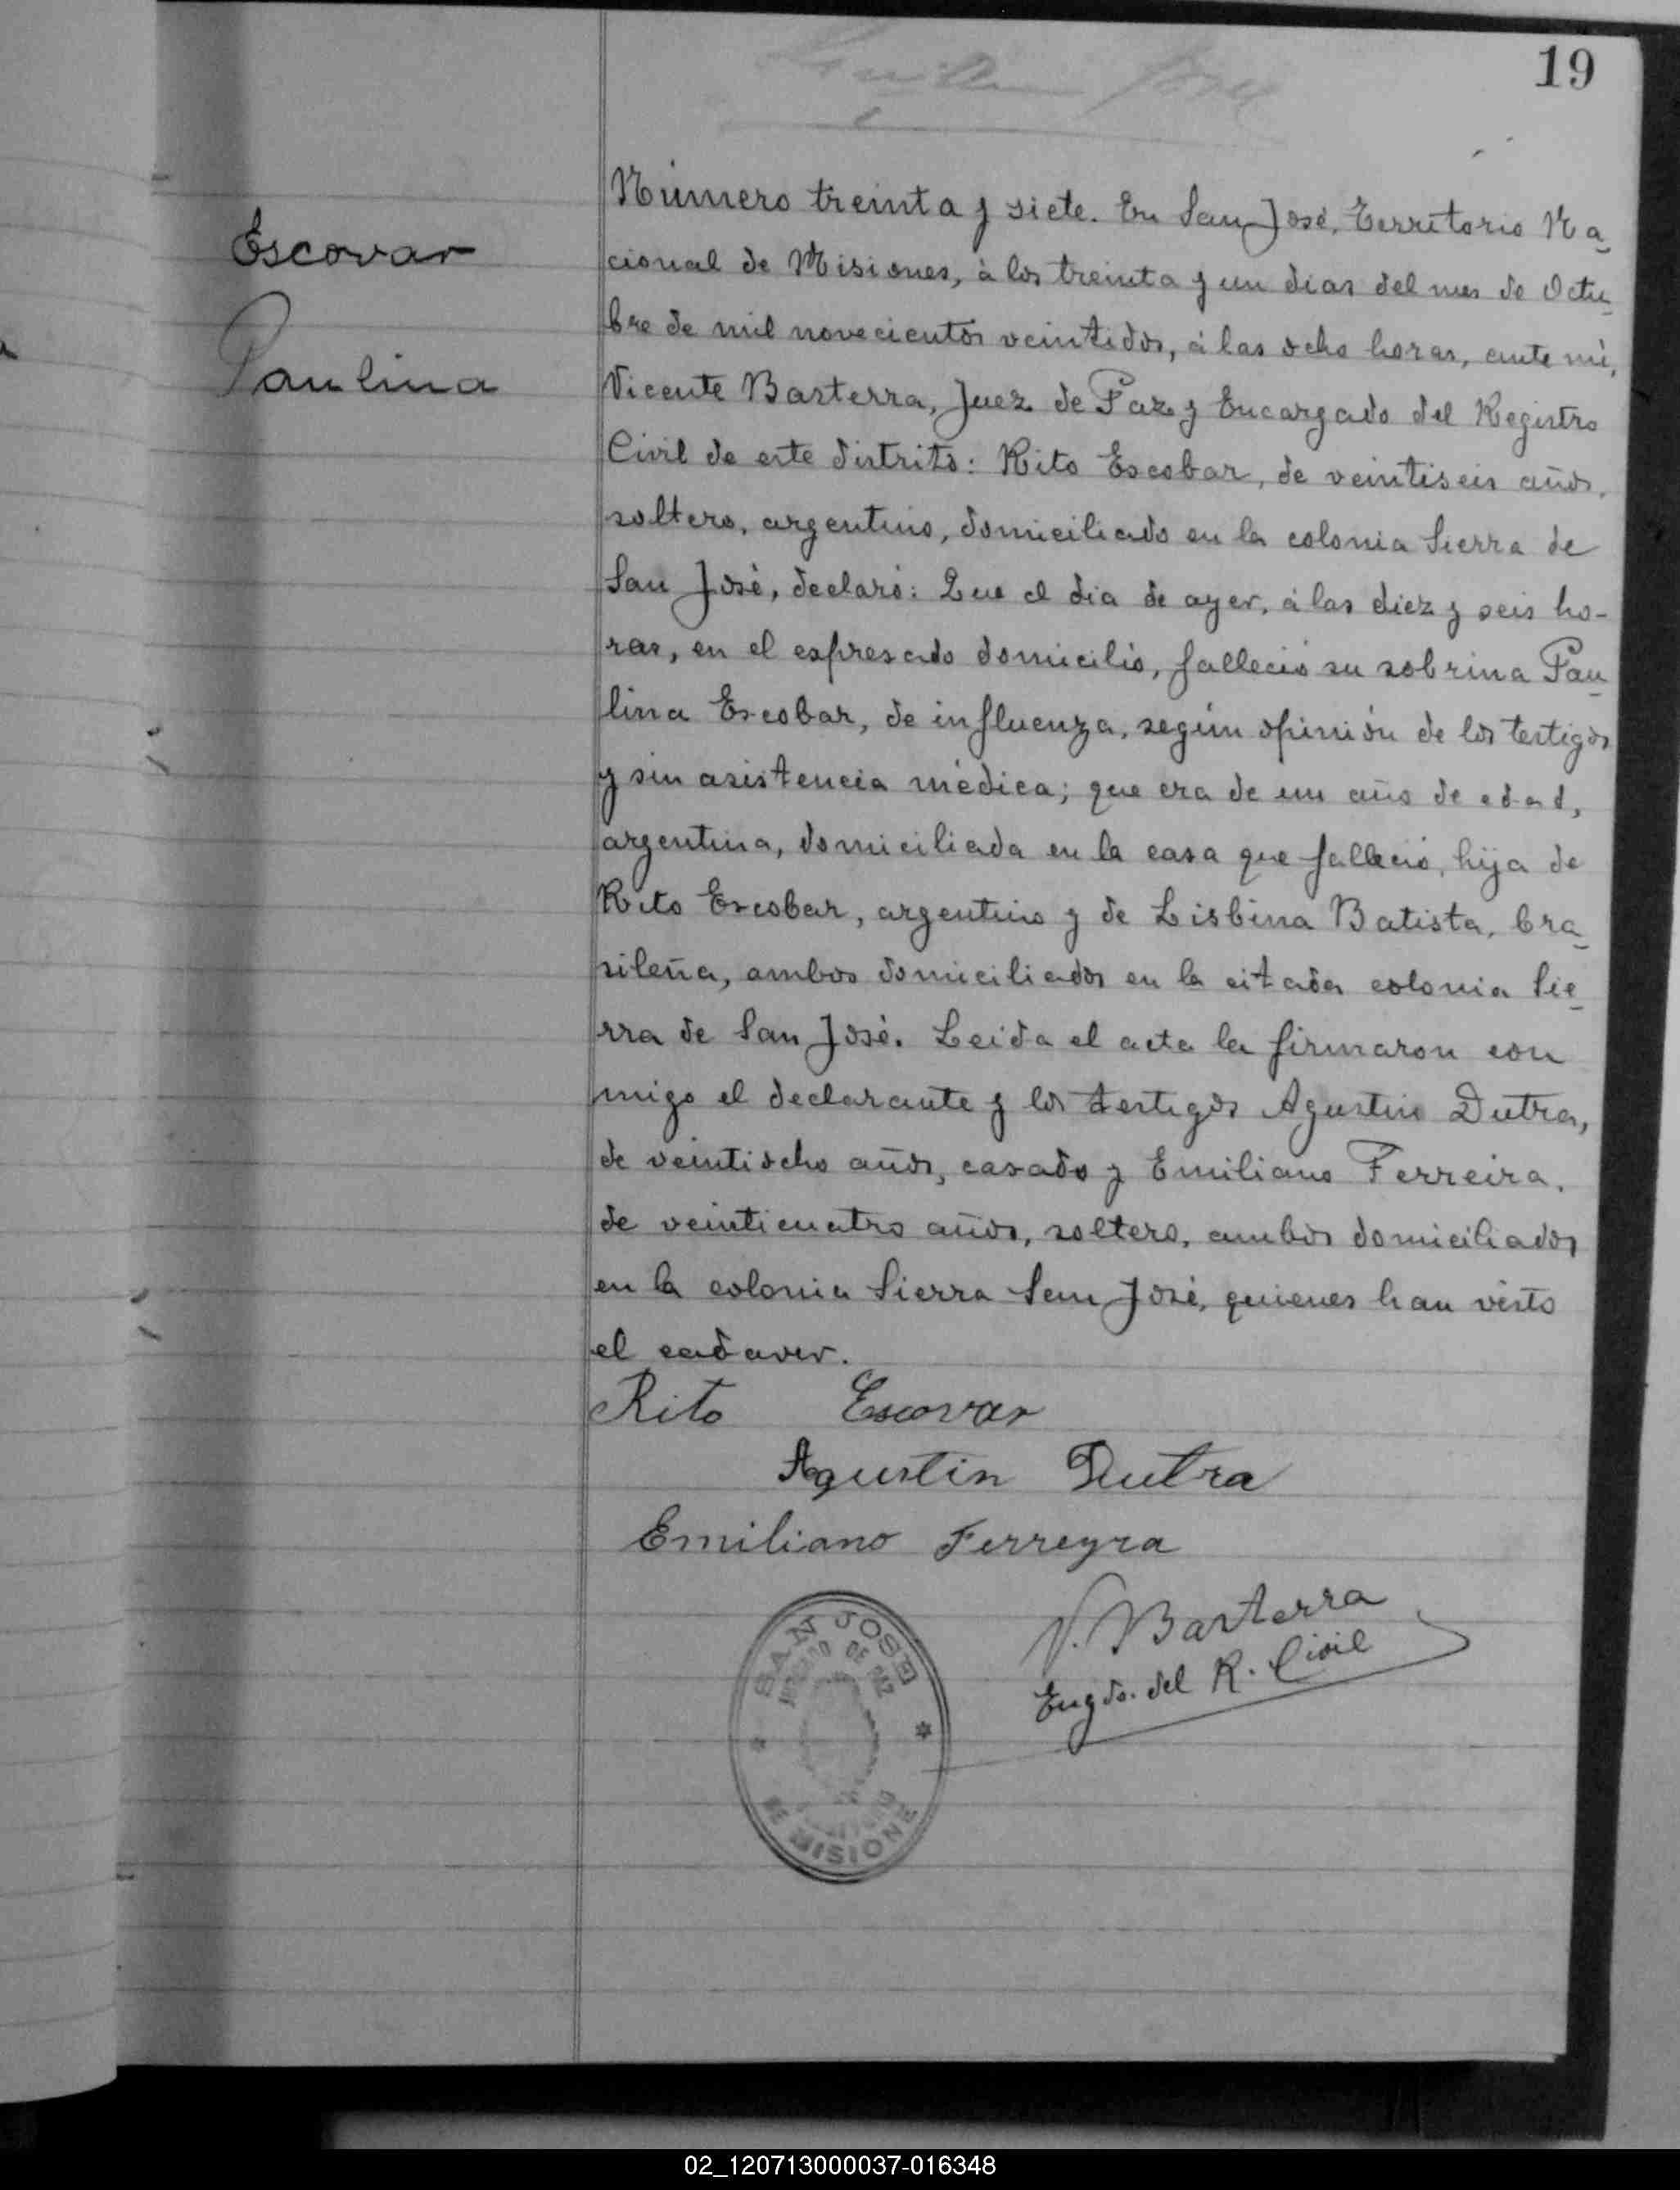 19
Escovar
Paulina
Número treinta y siete. En San José, Territorio Na-
cional de Misiones, á los treinta y un dias del mes de Octu-
bre de mil novecientos veintidos, á las ocho horas, ante mi,
Vicente Basterra, Juez de Paz y Encargado del Registro
Civil de este distrito: Rito Escobar, de veintiseis años,
soltero, argentino, domiciliado en la colonia Sierra de
San José, declaró: Que el dia de ayer, á las diez y seis ho-
ras, en el expresado domicilio, falleció su sobrina Pau-
lina Escobar, de influenza, según opinión de los testigos
y sin asistencia médica; que era de un año de edad,
argentina, domiciliada en la casa que falleció, hija de
Rito Escobar, argentino y de Lisbina Batista, bra-
sileña, ambos domiciliados en la citada colonia Sie-
rra de San José. Leida el acta la firmaron con
migo el declarante y los testigos Agustin Dutra,
de veintiocho años, casado y Emiliano Ferreira,
de veinticuatro años, soltero, ambos domiciliados
en la colonia Sierra San José, quienes han visto
el cadaver.
Rito Escovar
Agustin Dutra
Emiliano Ferreyra
V. Basterra
Engdo. del R. Civil
SAN JOSE
JUZGADO DE PAZ
DE MISIONE
02_120713000037-016348